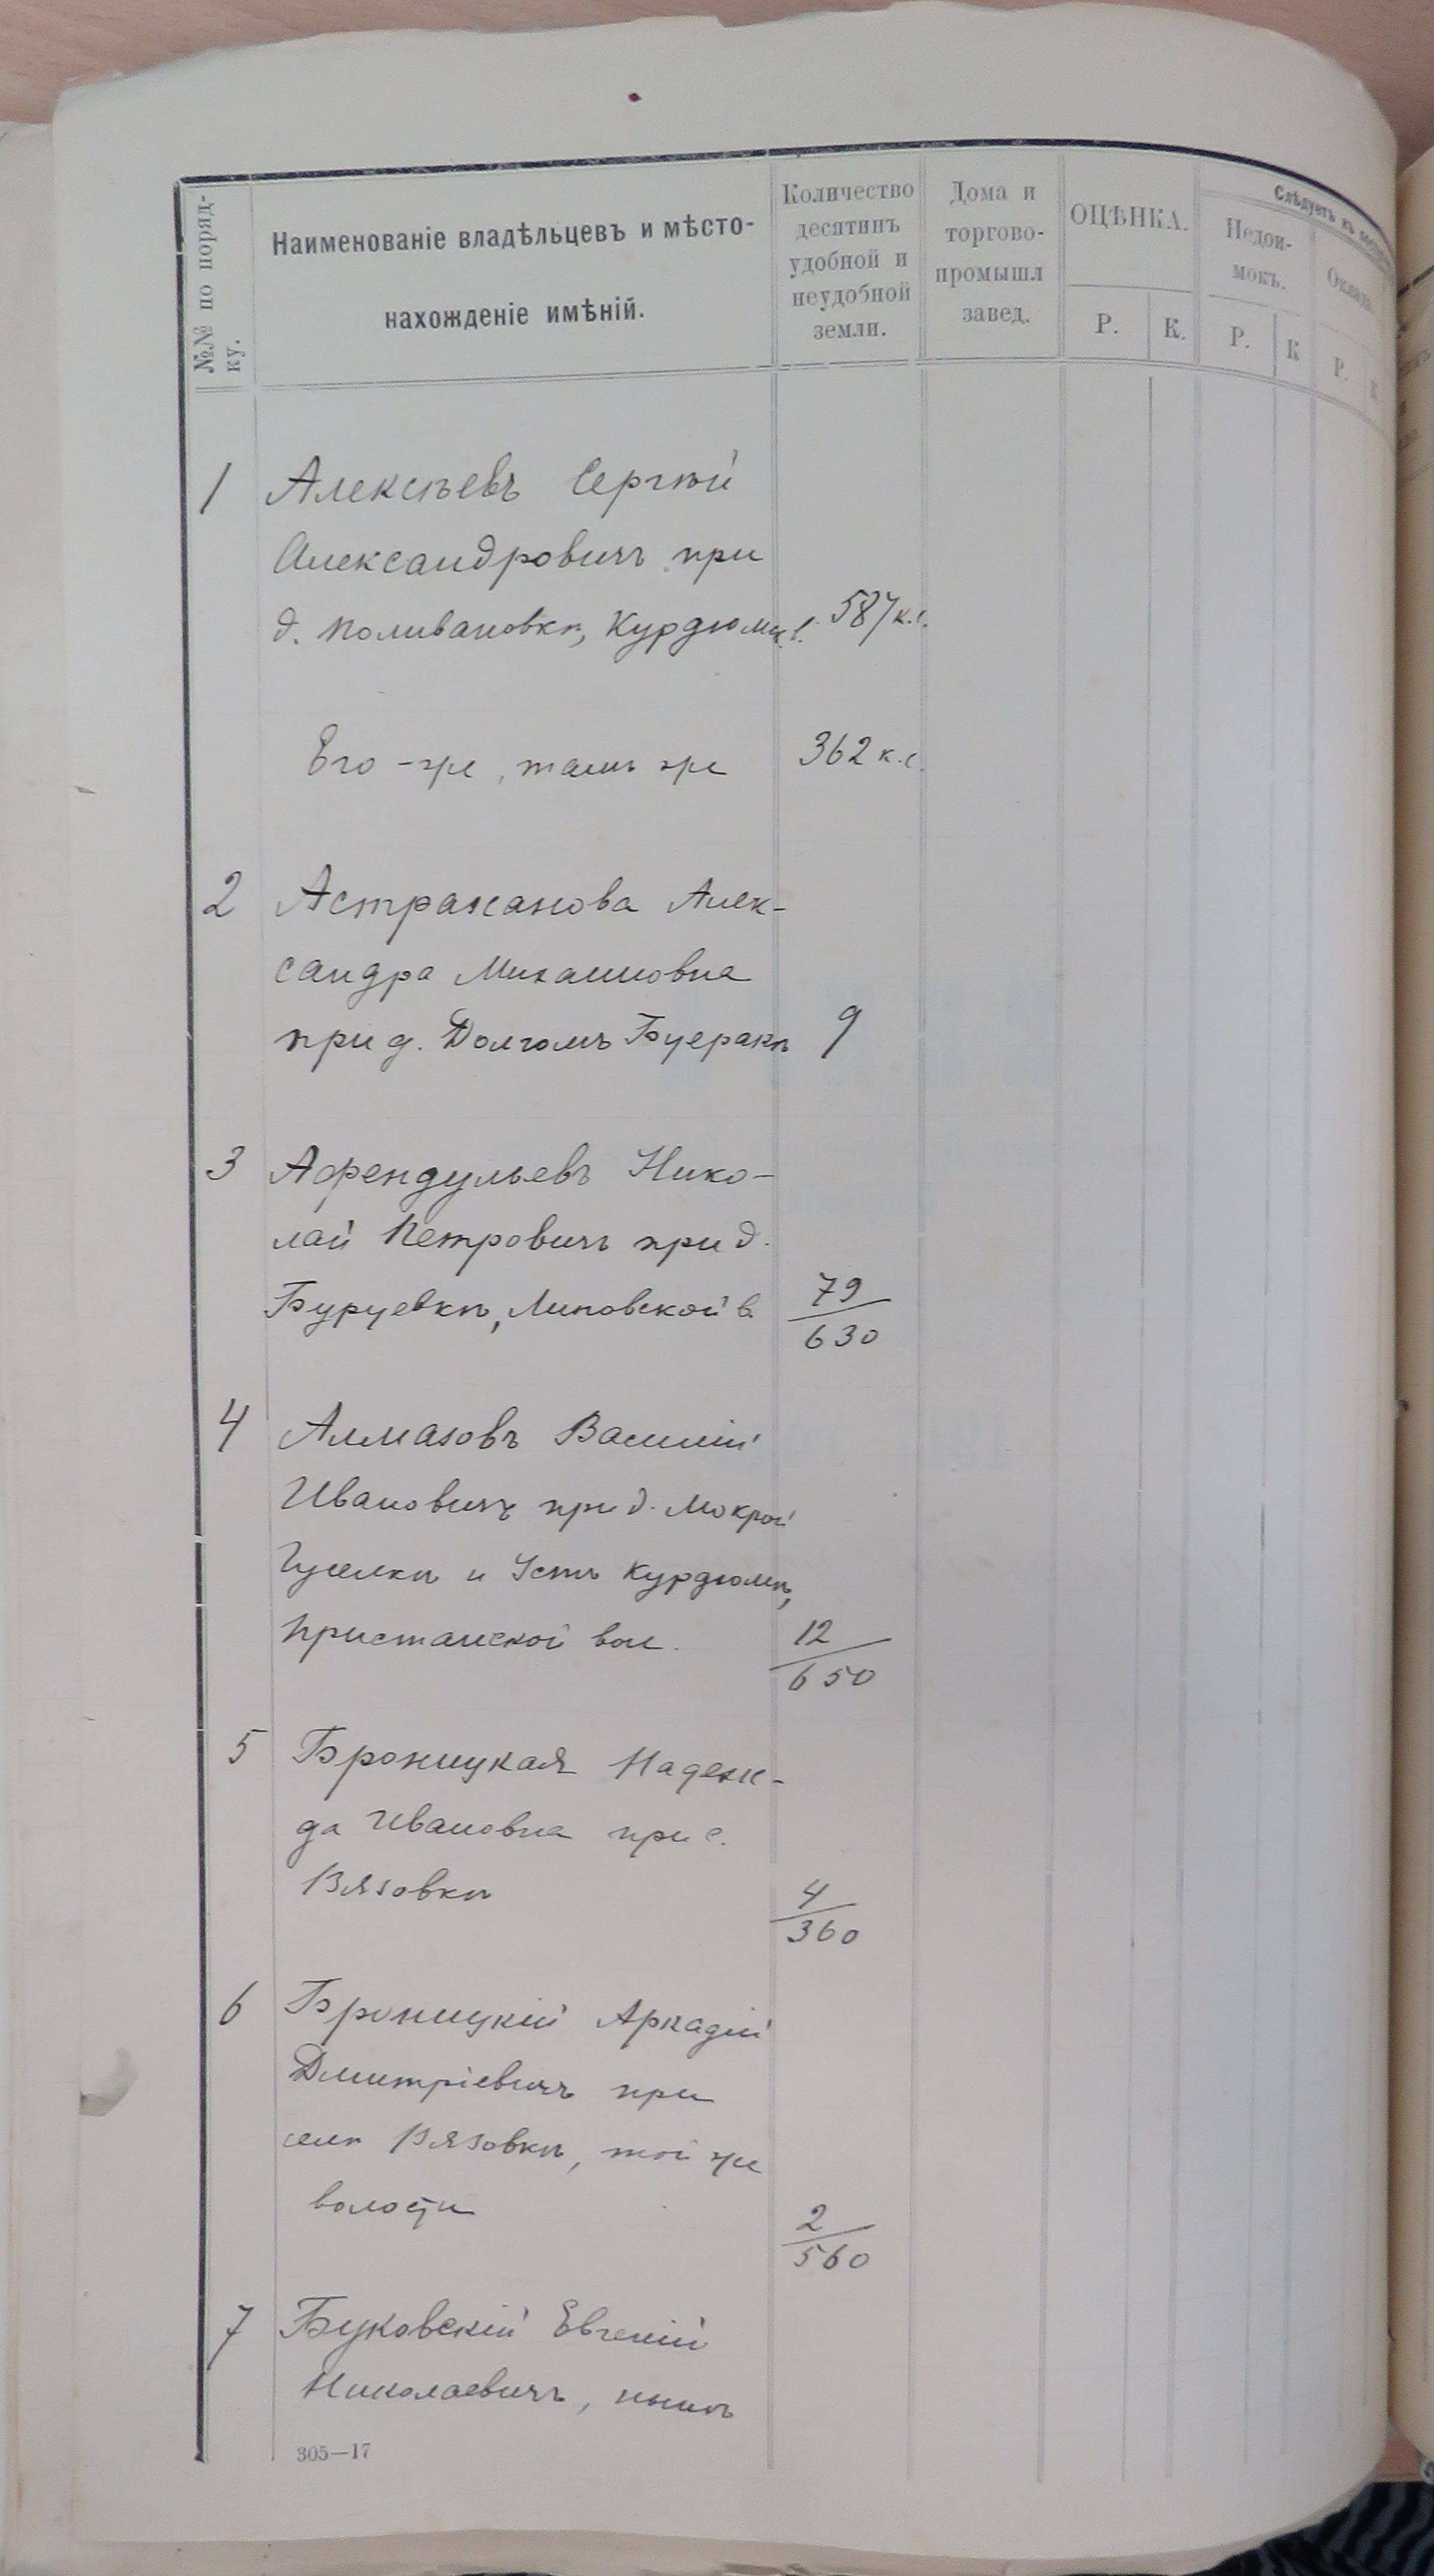 №№ по поряд-
ку.
Наименованіе владѣльцевъ и мѣсто-
нахожденіе имѣній.
Количество
десятинъ
удобной и
неудобной
земли.
Дома и
торгово-
промышл
завед.
ОЦѢНКА.
Р. К.
Слѣдуетъ къ
Недои-
мокъ.
Р. К
Оклада.
Р. К
1 Алексѣевъ Сергѣй
Александровичъ при
д. Поливановкѣ, Курдюм. в. 587 к.с.
Его-же, тамъ же 362 к.с.
2 Астраханова Алек-
сандра Михаиловна
при д. Долгомъ Буеракѣ 9
3 Афендульевъ Нико-
лай Петровичъ при д.
Бурцевкѣ, Липовской в. 79/630
4 Алмазовъ Василій
Ивановичъ при д. Мокрой
Гуселкѣ и Усть Курдюмѣ,
Пристанской вол. 12/650
5 Броницкая Надеж-
да Ивановна при с.
Вязовкѣ 4/360
6 Броницкій Аркадій
Дмитріевичъ при
селѣ Вязовкѣ, той же
волости 2/560
7 Буковскій Евгеній
Николаевичъ, нынѣ
305—17